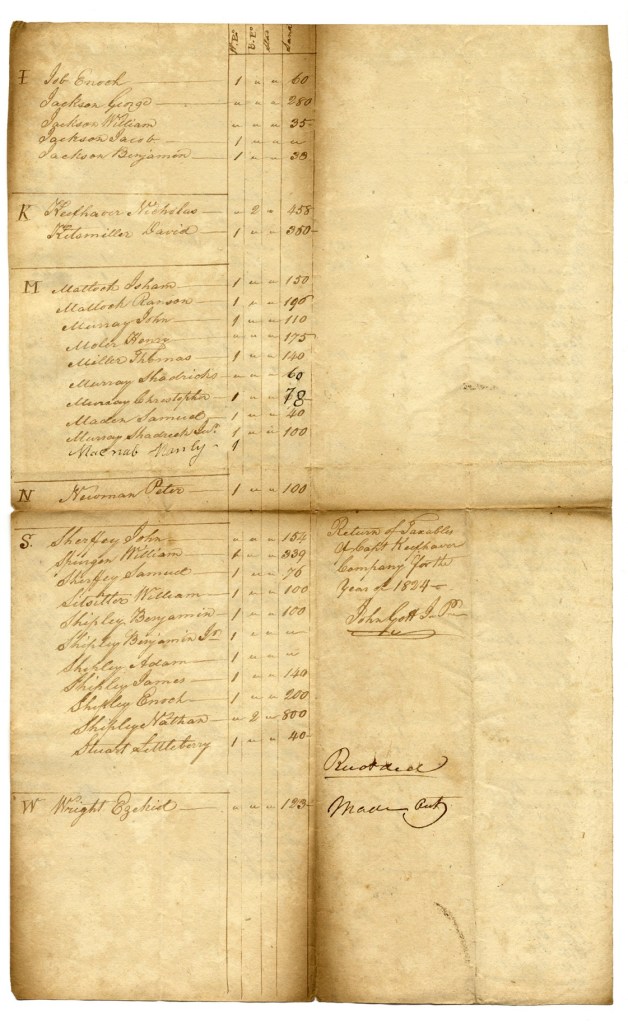 W. Po B. Po Stud Land
I Job Enoch 1 " " 60
Jackson George " " " 280
Jackson William " " " 35
Jackson Jacob 1 " " "
Jackson Benjamin 1 " " 33
K Keefhaver Nicholas " 2 " 458
Kitsmiller David 1 " " 380
M Matlock Isham 1 " " 150
Matlock Ranson 1 " " 196
Murray John 1 " " 110
Moler Henry " " " 175
Miller Thomas 1 " " 140
Murray Shadrich " " " 60
Murray Christopher 1 " " 78
Maden Samuel 1 " " 40
Murray Shadrich Jur. 1 " " 100
Macnab Henly 1
N Newman Peter 1 " " 100
S. Sherfey John " " " 154
Spurgen William 1 " " 339
Sherfey Samuel 1 " " 76
Sitsitter William 1 " " 100
Shipley Benjamin 1 " " 100
Shipley Benjamin Jr 1 " " "
Shipley Adam 1 " " "
Shipley James 1 " " 140
Shipley Enoch 1 " " 200
Shipley Nathan " 2 " 800
Stuart Littlebery 1 " " 40
W Wright Ezekiel " " " 123
Return of Taxables
of Capt Keefhaver
Company for the
Year of 1824
John Gott J. P.
Recorded
Made Out